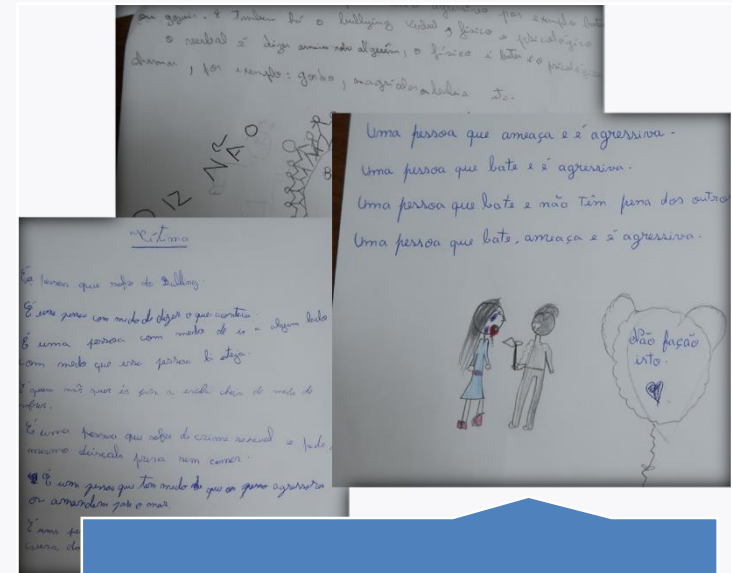 ou alguém. E Também há o bullying verbal, físico e psicológico
o verbal é dizer a alguém, o físico é bater e o psicológico
chamar, por exemplo: gordo, etc.
DIZ NÃO
B
Uma pessoa que ameaça e é agressiva.
Uma pessoa que bate e é agressiva.
Uma pessoa que bate e não têm pena dos outro
Uma pessoa que bate, ameaça e é agressiva.
Não fação
isto.
Vítima
pessoa que sofre de Bulling.
É uma pessoa com medo de dizer o que acontece.
É uma pessoa com medo de ir a algum lado
com medo que essa pessoa lá esteja.
É quem não quer ir para a escola cheio de medo de
sofrer.
É uma pessoa que sofre de crime sexual e pode
mesmo deixala presa sem comer.
É uma pessoa que tem medo de que os agressores
ou amandem para o mar.
É uma
causa da